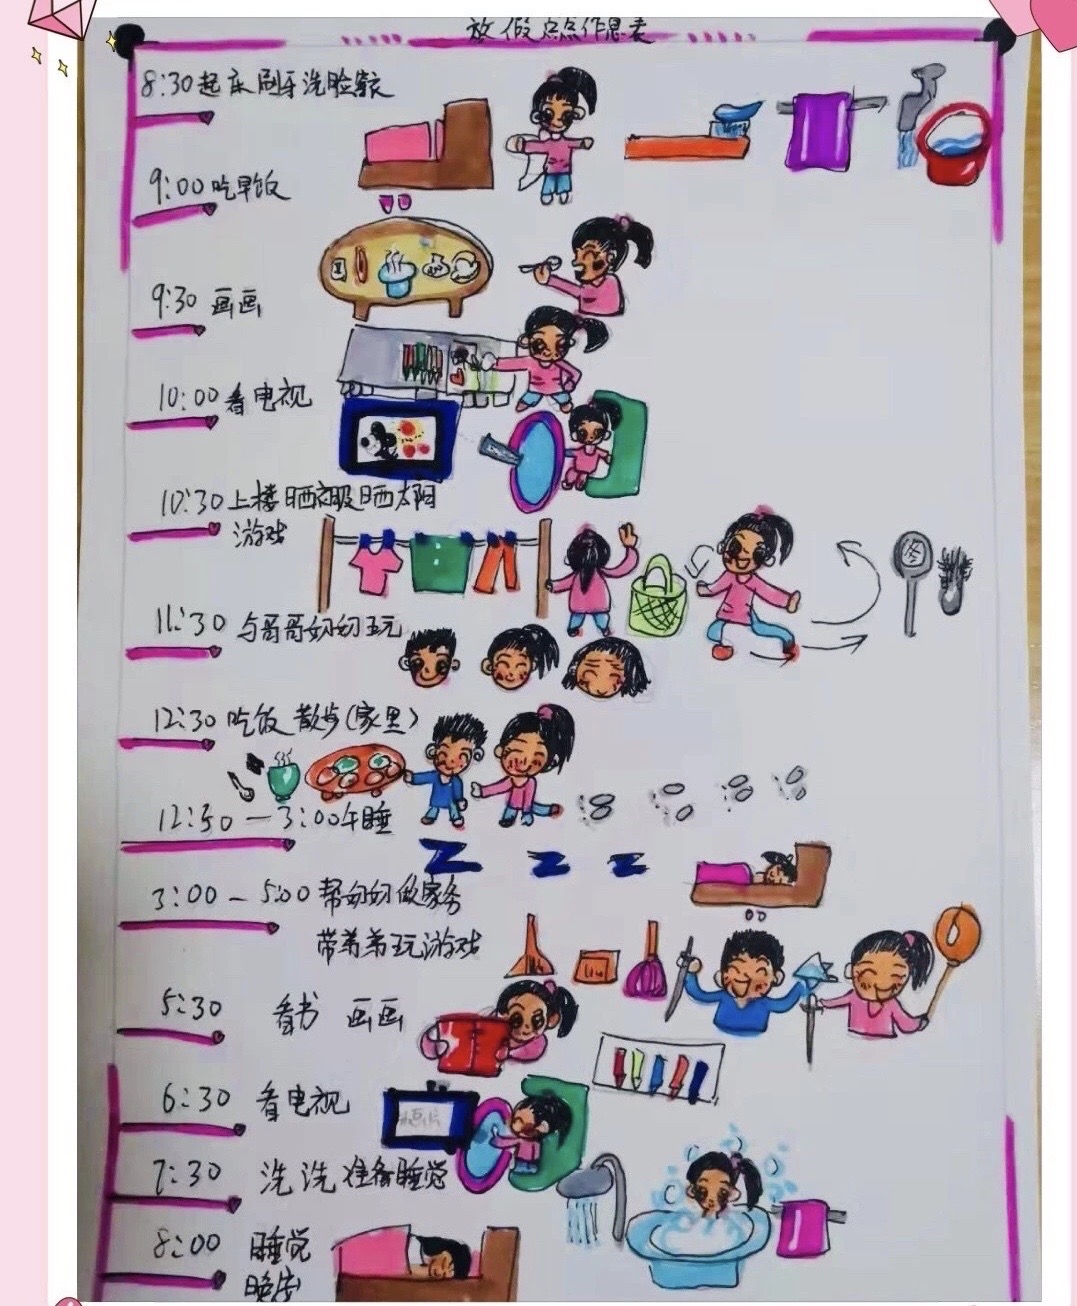 放假点点作息表
8:30起床刷牙洗脸
9:00吃早饭
9:30 画画
10:00看电视
10:30上楼晒衣服晒太阳
游戏
11:30 与哥哥奶奶玩
12:30 吃饭 散步(家里)
12:50—3:00午睡
Z Z Z
3:00—5:00 帮奶奶做家务
带弟弟玩游戏
5:30 看书 画画
6:30 看电视
7:30 洗洗 准备睡觉
8:00 睡觉
晚安